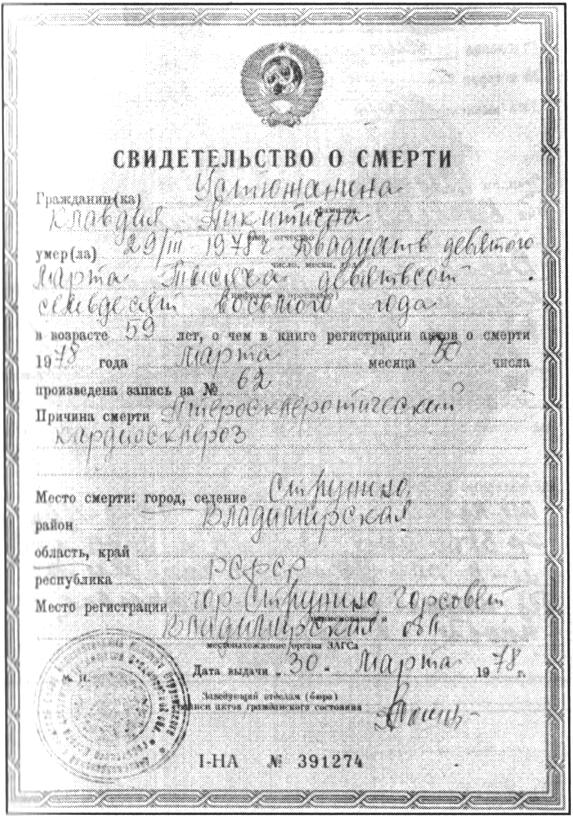 СВИДЕТЕЛЬСТВО О СМЕРТИ
Гражданин(ка) Устюжанина
фамилия
Клавдия Никитична
имя, отчество
умер(ла) 29/III 1978 г двадцать девятого
число, месяц,
марта тысяча девятьсот
семьдесят восьмого года
в возрасте 59 лет, о чем в книге регистрации актов о смерти
1978 года марта месяца 30 числа
произведена запись за № 62
Причина смерти Атеросклеротический
кардиосклероз
Место смерти: город, селение Струнино
район Владимирская
область, край
республика РСФСР
Место регистрации гор. Струнино горсовет
наименование и
Владимирская обл
местонахождение органа ЗАГСа
Дата выдачи „30“ марта 1978 г.
М. П.
Заведующий отделом (бюро)
записи актов гражданского состояния
I-НА № 391274